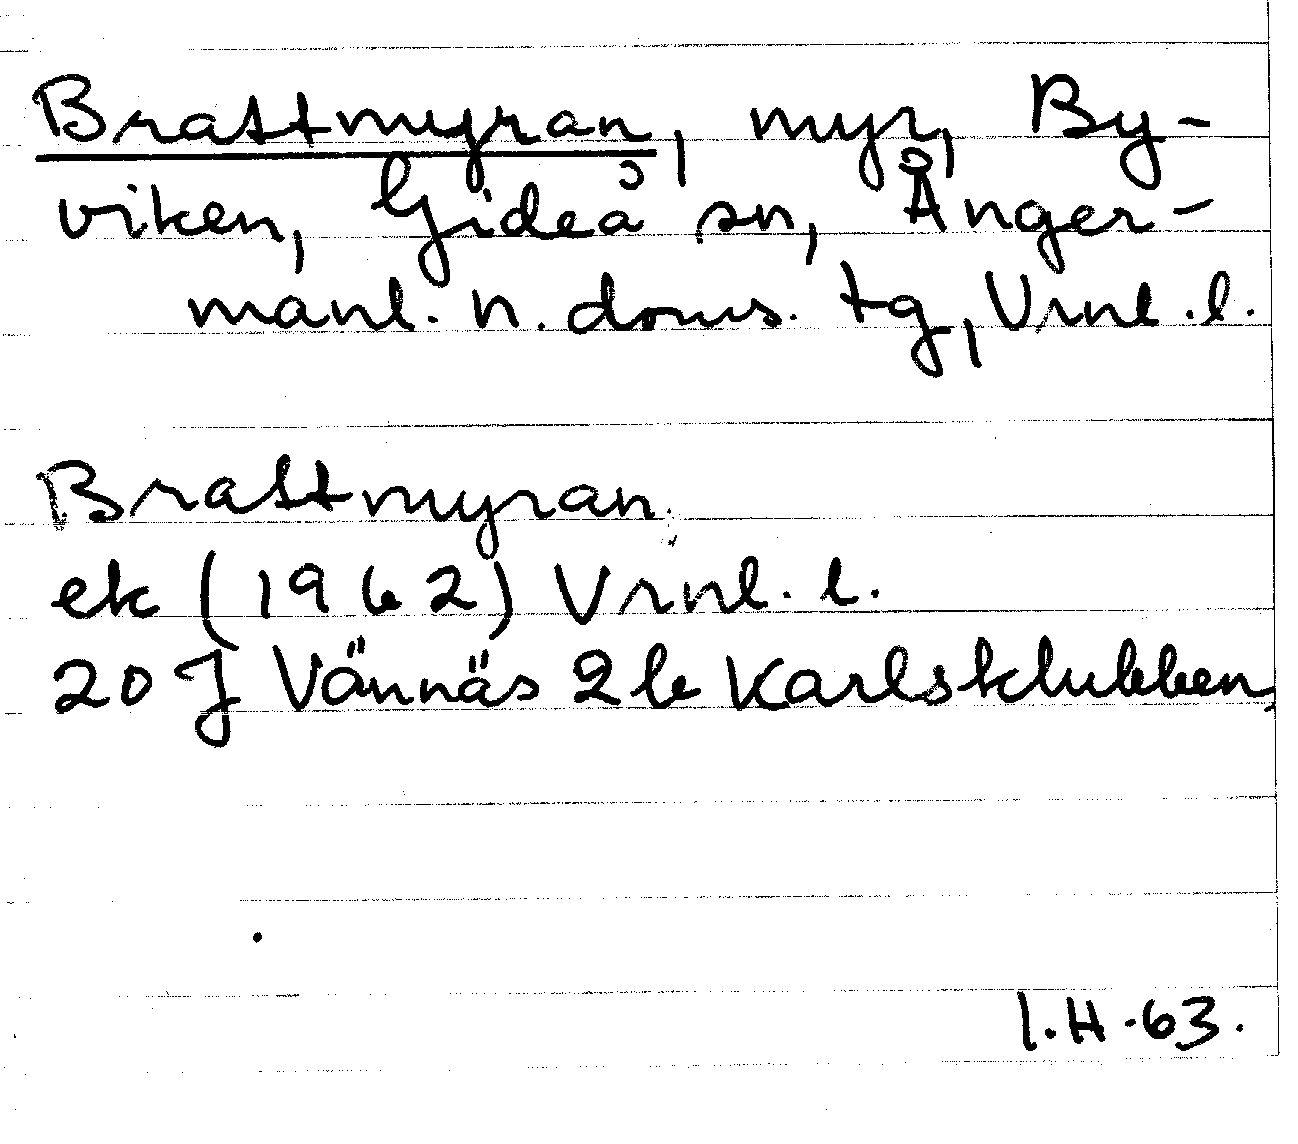 Brattmyran, myr, By-
viken, Gideå sn, Ånger-
manl. n. doms. tg, Vrnl. l.
Brattmyran
ek (1962) Vrnl. l.
20 J Vännäs 2 b Karlsklubben
I.H.63.